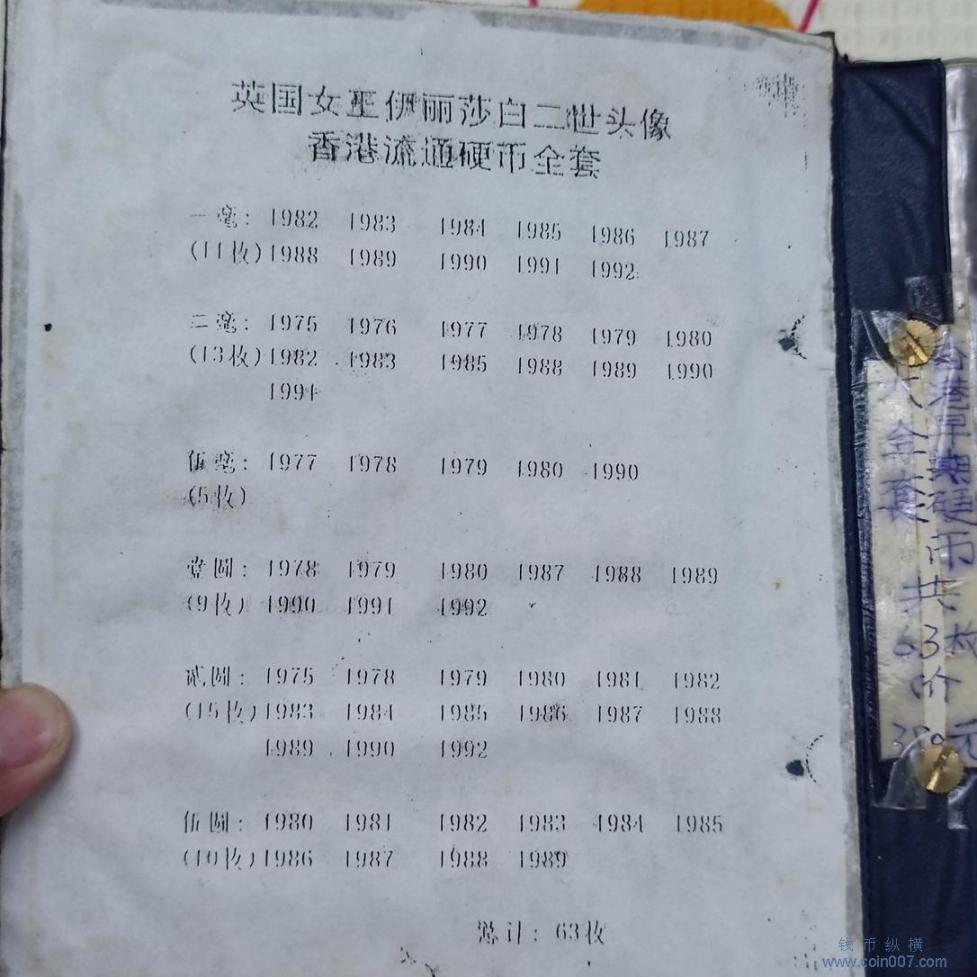 英国女王伊丽莎白二世头像
香港流通硬币全套
一毫: 1982 1983 1984 1985 1986 1987
(11枚) 1988 1989 1990 1991 1992
二毫: 1975 1976 1977 1978 1979 1980
(13枚) 1982 1983 1985 1988 1989 1990
1991
伍毫: 1977 1978 1979 1980 1990
(5枚)
壹圆: 1978 1979 1980 1987 1988 1989
(9枚) 1990 1991 1992
贰圆: 1975 1978 1979 1980 1981 1982
(15枚) 1983 1984 1985 1986 1987 1988
1989 1990 1992
伍圆: 1980 1981 1982 1983 1984 1985
(10枚) 1986 1987 1988 1989
总计: 63枚
香港早期硬币
大全套
共
63枚
价
元
钱币纵横
www.coin007.com